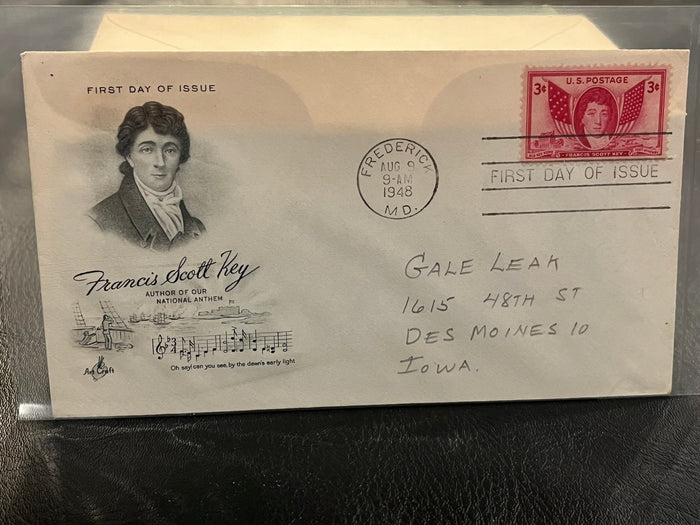 FIRST DAY OF ISSUE
Francis Scott Key
AUTHOR OF OUR
NATIONAL ANTHEM
Oh say! can you see, by the dawn's early light
Art Craft
FREDERICK
AUG 9
9-AM
1948
MD.
U.S. POSTAGE
3¢ 3¢
FRANCIS SCOTT KEY
FIRST DAY OF ISSUE
GALE LEAK
1615 48TH ST
DES MOINES 10
IOWA.